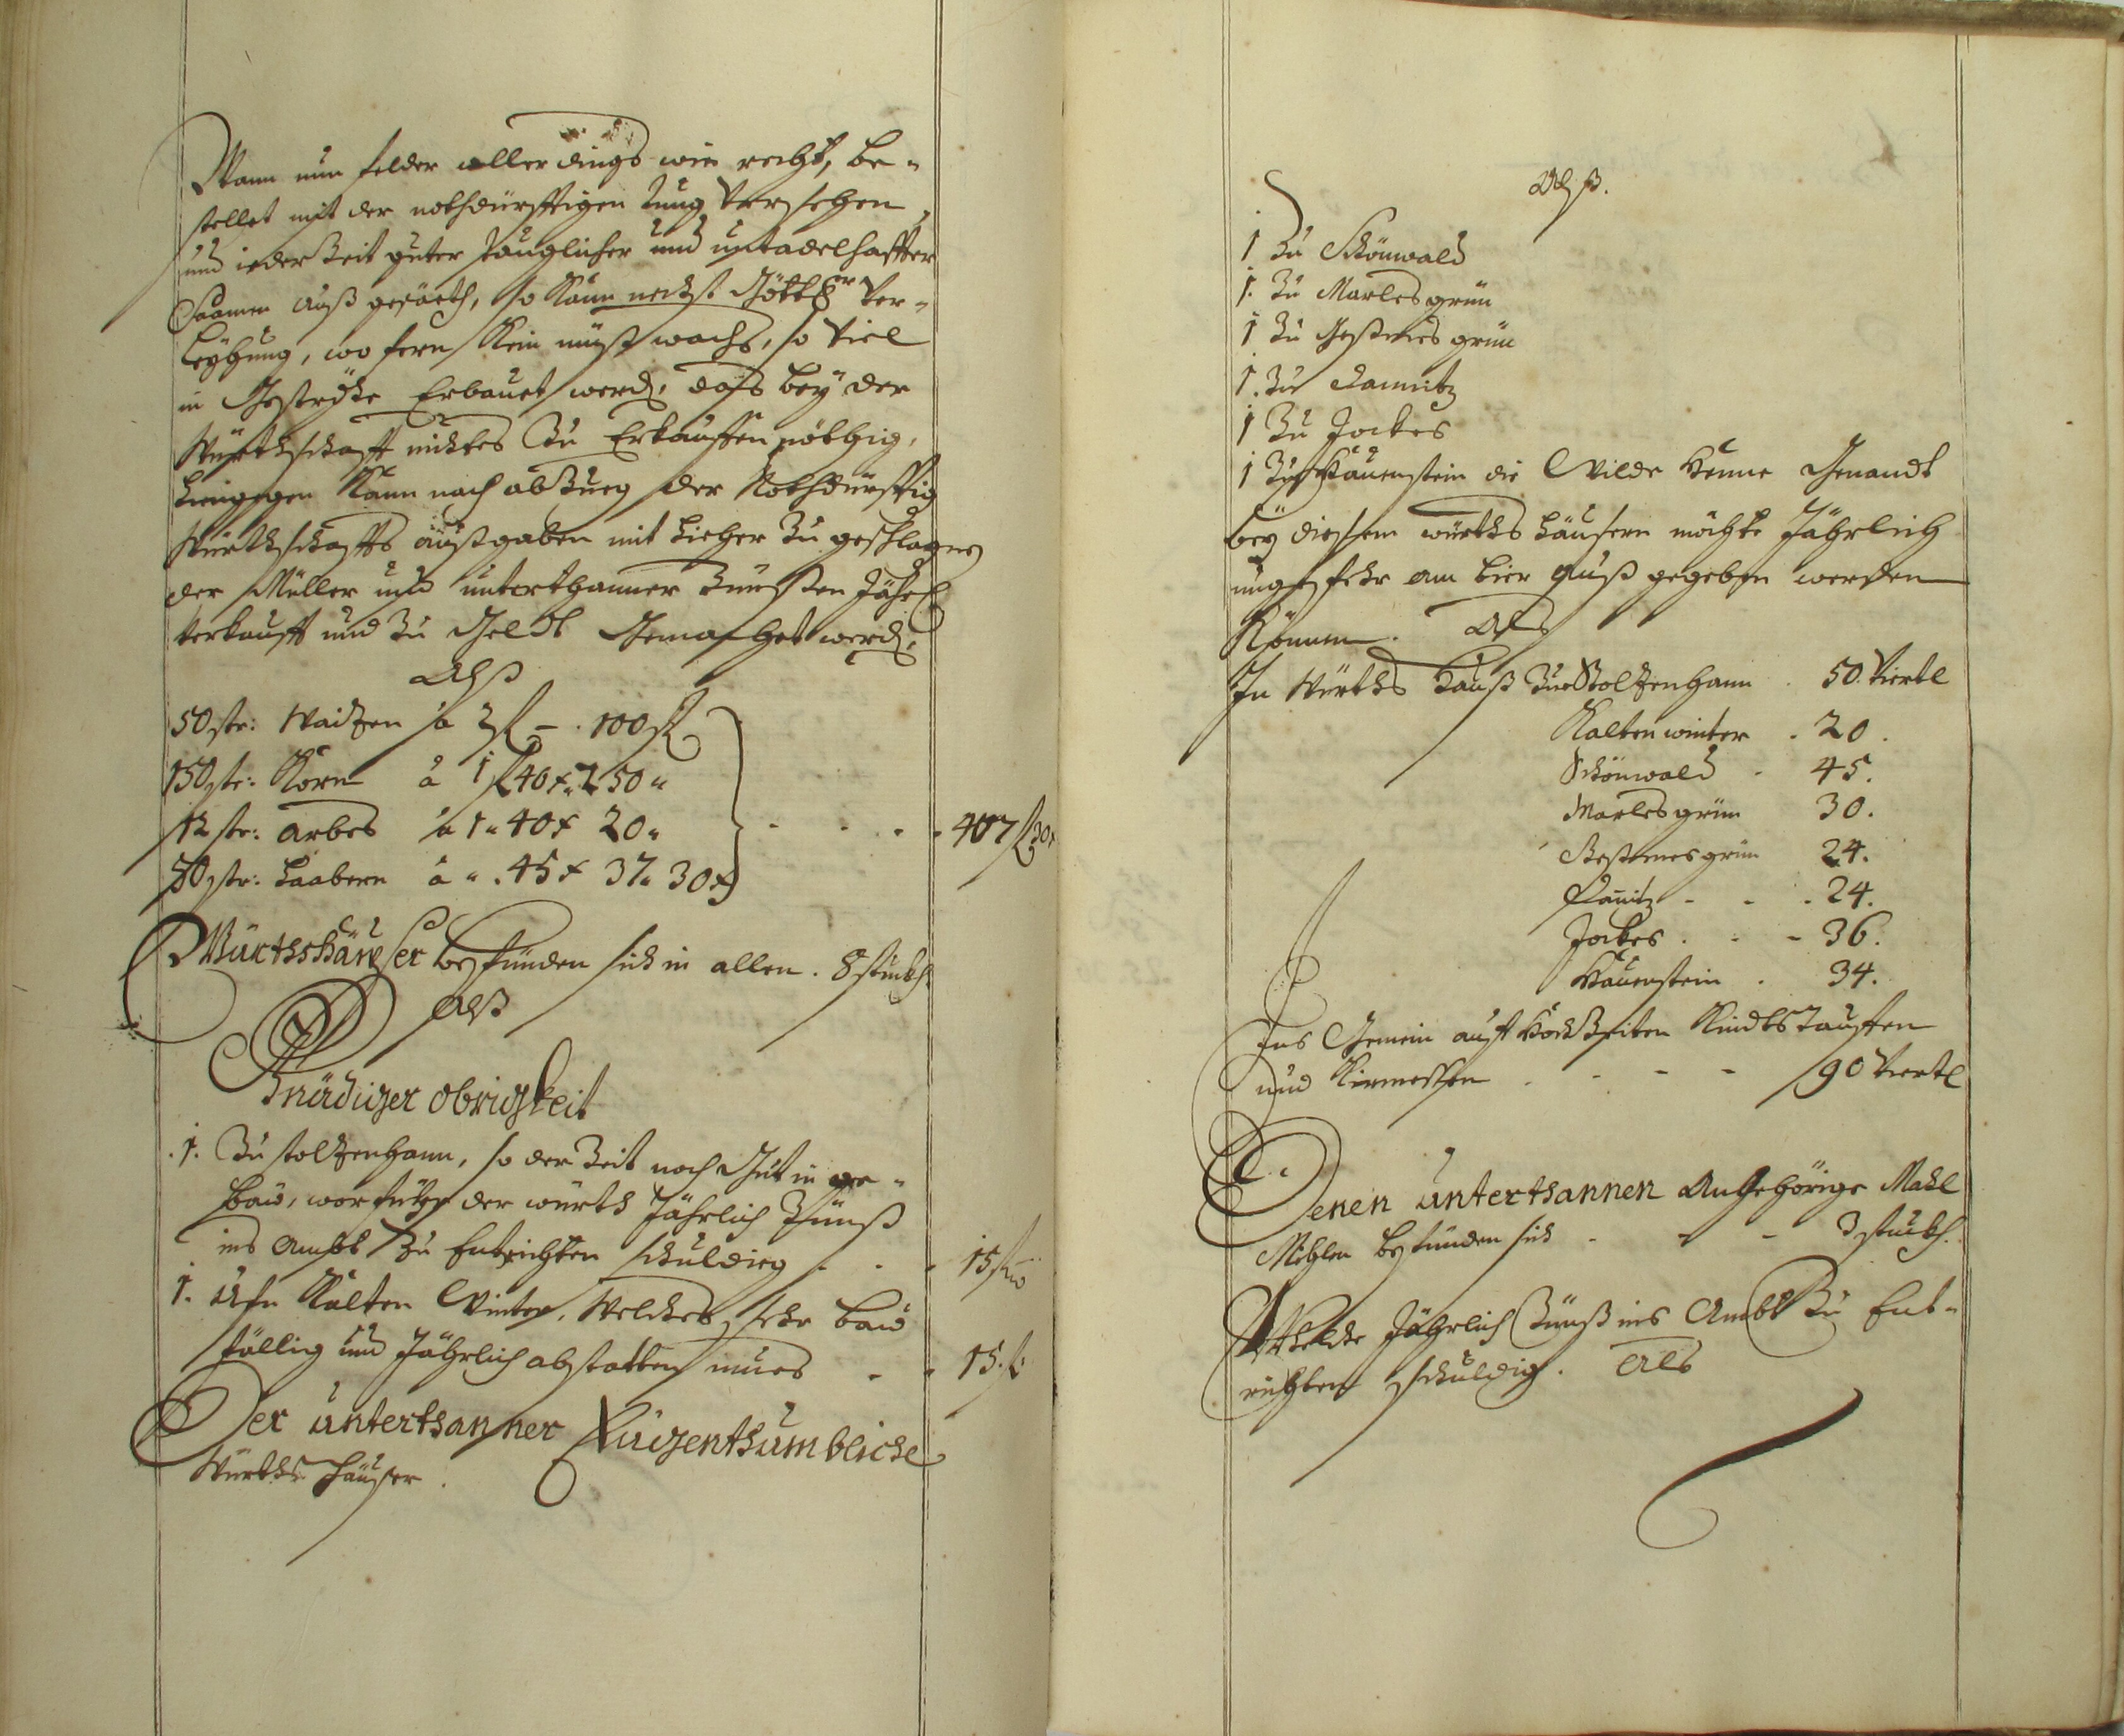 Wann nun felder allerdings wie recht, be-
stellet mit der nothdürfftigen tung versehen,
und iederzeit guter tauglicher und untadelhaffter
Saamen auß gesäeth, so kann nechst Göttl: ver-
leyhung, wo fern kein mißwachs, so viel
in Getreyde Erbauet werd, dass bey der
Würthschafft nichtes Zu Erkauffen nöthig,
hingegen kann nach abzueg der Nothdürfftig
Würthschaffts außgaben mit hieher Zu geschlagner
der Müller und unterthanner Zünßen Jährl
verkaufft und Zu Geldt Gemachet werd,
Alß
50 str: Waitzen à 2 fl - . 100 fl
150 str: Korn à 1 fl 40 x. 250 "
12 str: arbes à 1 " 40 x 20 "
50 str: haabern à " . 45 x 37 " 30 x
- - - - 407 fl 30 x
Würthshäußer befünden sich in allen . 8 stückh
Alß
Gnädiger obrigkeit
. 1. Zu stoltzenhann, so der Zeit noch Guet in ge-
bau, worfüer der würth Jährlich Zünß
ins Ambt Zu Entrichten schuldieg . . . 15 fl
1. Ufn Kalten Winter, Welches sehr bau
fällig und Jährlich abstatten mues - - 15. fl
Der unterthanner Aügenthümbliche
Würths häußer .
Alß.
1 Zu Schönwald
1. Zu Marlesgrün
1 Zu Geßmesgrün
1. Zu Damitz
1 Zu Jockes
1 Zu Hauenstein die Wilde Henne Genandt
bey diesem würths häusern möchte Jährlich
ungefehr am bier auß gegeben werden
können. Als
In Würths hauß Zue Stoltzenhann . 50. Viertl
Kalten winter . 20 .
Schönwald - 45.
Marlesgrün 30.
Geßmesgrün 24.
Damitz - - . 24.
Jockes . - - 36.
Hauenstein . 34.
Ins Gemein auff Hochzeiten Kindtstauffen
und Kirmessen . - - - 90 Viertl
Denen unterthannen Angehörige Mahl
Mühlen befünden sich - - - 3 stückh.
Welche Jährlich Zünß ins Ambt Zu Ent-
richten schuldig. Als